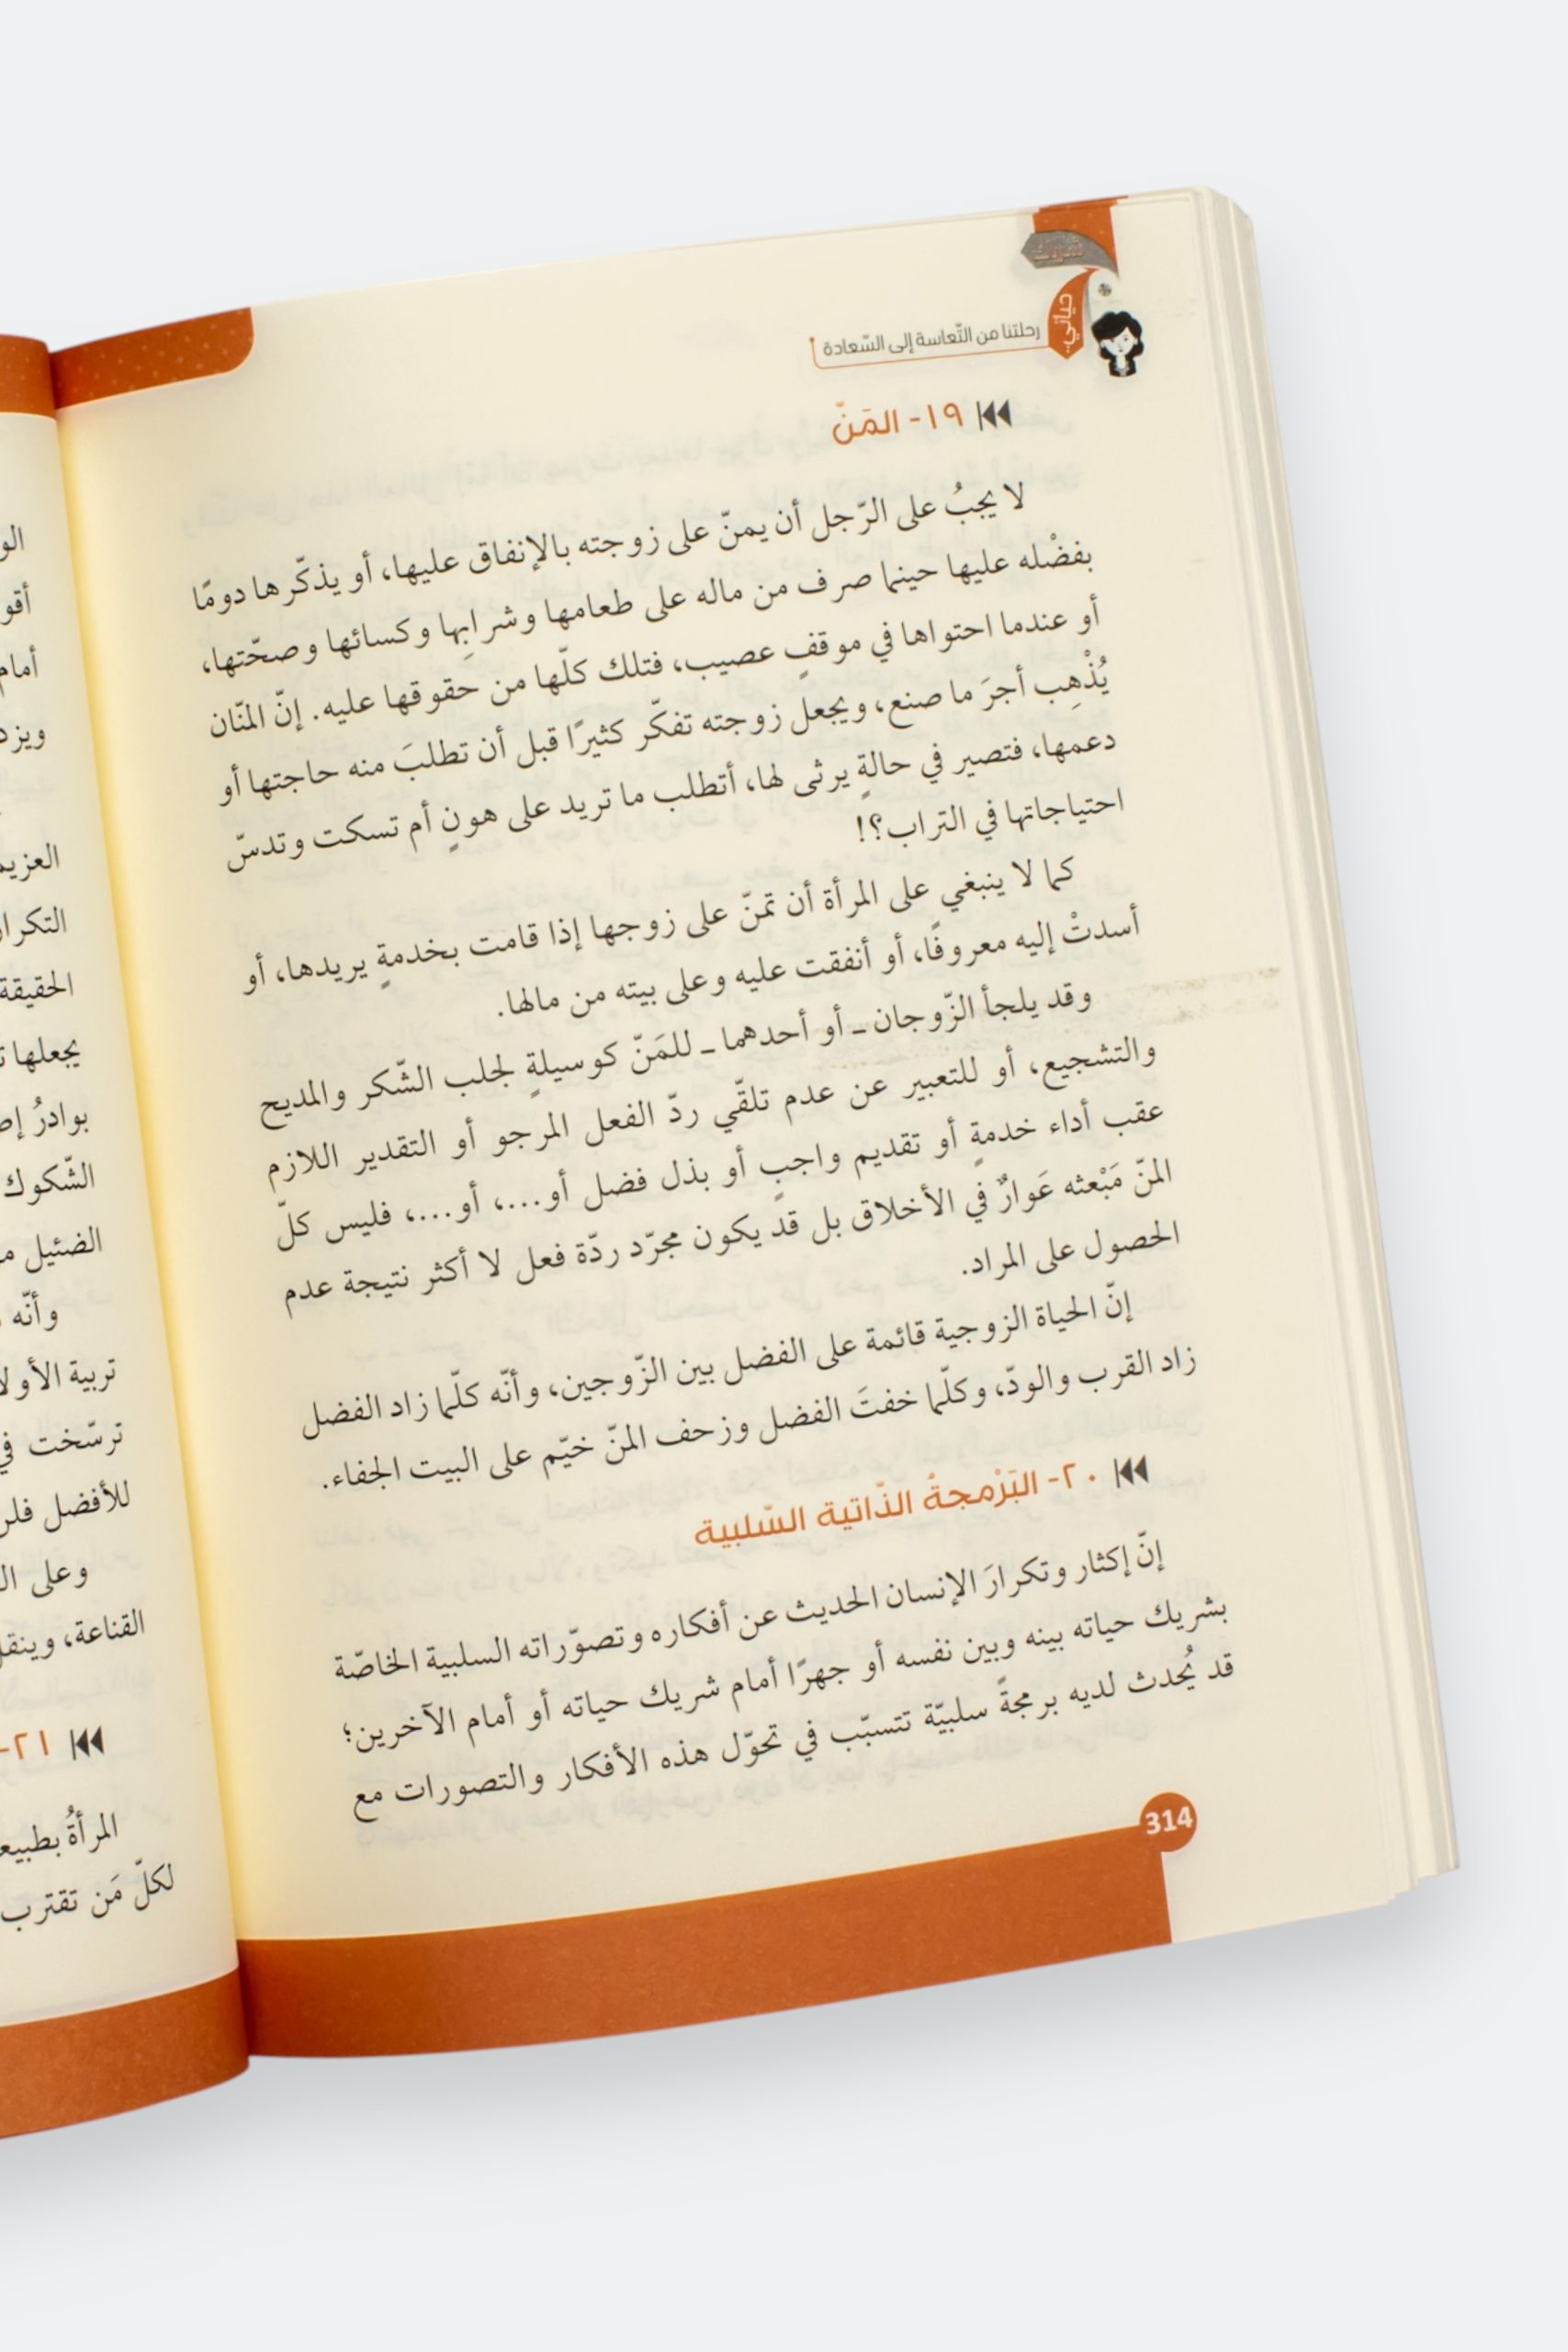 شريك
حياتي..
رحلتنا من التّعاسة إلى السّعادة
١٩- المَنّ
لا يجبُ على الرّجل أن يمنّ على زوجته بالإنفاق عليها، أو يذكّرها دومًا
بفضْله عليها حينما صرف من ماله على طعامها وشرابِها وكسائها وصحّتها،
أو عندما احتواها في موقفٍ عصيب، فتلك كلّها من حقوقها عليه. إنّ المنّان
يُذْهِب أجرَ ما صنع، ويجعل زوجته تفكّر كثيرًا قبل أن تطلبَ منه حاجتها أو
دعمها، فتصير في حالةٍ يرثى لها، أتطلب ما تريد على هونٍ أم تسكت وتدسّ
احتياجاتها في التراب؟!
كما لا ينبغي على المرأة أن تمنّ على زوجها إذا قامت بخدمةٍ يريدها، أو
أسدتْ إليه معروفًا، أو أنفقت عليه وعلى بيته من مالها.
وقد يلجأ الزّوجان ـ أو أحدهما ـ للمَنّ كوسيلةٍ لجلب الشّكر والمديح
والتشجيع، أو للتعبير عن عدم تلقّي ردّ الفعل المرجو أو التقدير اللازم
عقب أداء خدمةٍ أو تقديم واجبٍ أو بذل فضل أو...، أو...، فليس كلّ
المنّ مَبْعثه عَوارٌ في الأخلاق بل قد يكون مجرّد ردّة فعل لا أكثر نتيجة عدم
الحصول على المراد.
إنّ الحياة الزوجية قائمة على الفضل بين الزّوجين، وأنّه كلّما زاد الفضل
زاد القرب والودّ، وكلّما خفتَ الفضل وزحف المنّ خيّم على البيت الجفاء.
٢٠- البَرْمجةُ الذّاتية السّلبية
إنّ إكثار وتكرارَ الإنسان الحديث عن أفكاره وتصوّراته السلبية الخاصّة
بشريك حياته بينه وبين نفسه أو جهرًا أمام شريك حياته أو أمام الآخرين؛
قد يُحدث لديه برمجةً سلبيّة تتسبّب في تحوّل هذه الأفكار والتصورات مع
314
أمام
العزيم
الحقيقة
يجعلها
بوادرُ
الشّكوك
الضئيل
وأنّه
تربية
ترسّخت في
للأفضل
وعلى
القناعة،
٢١-
المرأةُ
لكلّ مَن تقترب